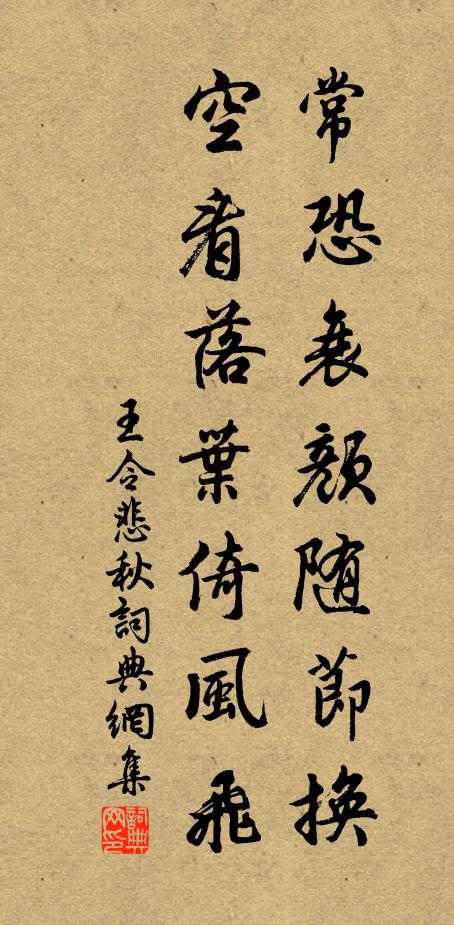 常恐衰顔随節換
空看落葉倚風飛
王令悲秋詞典網集
詞典網印